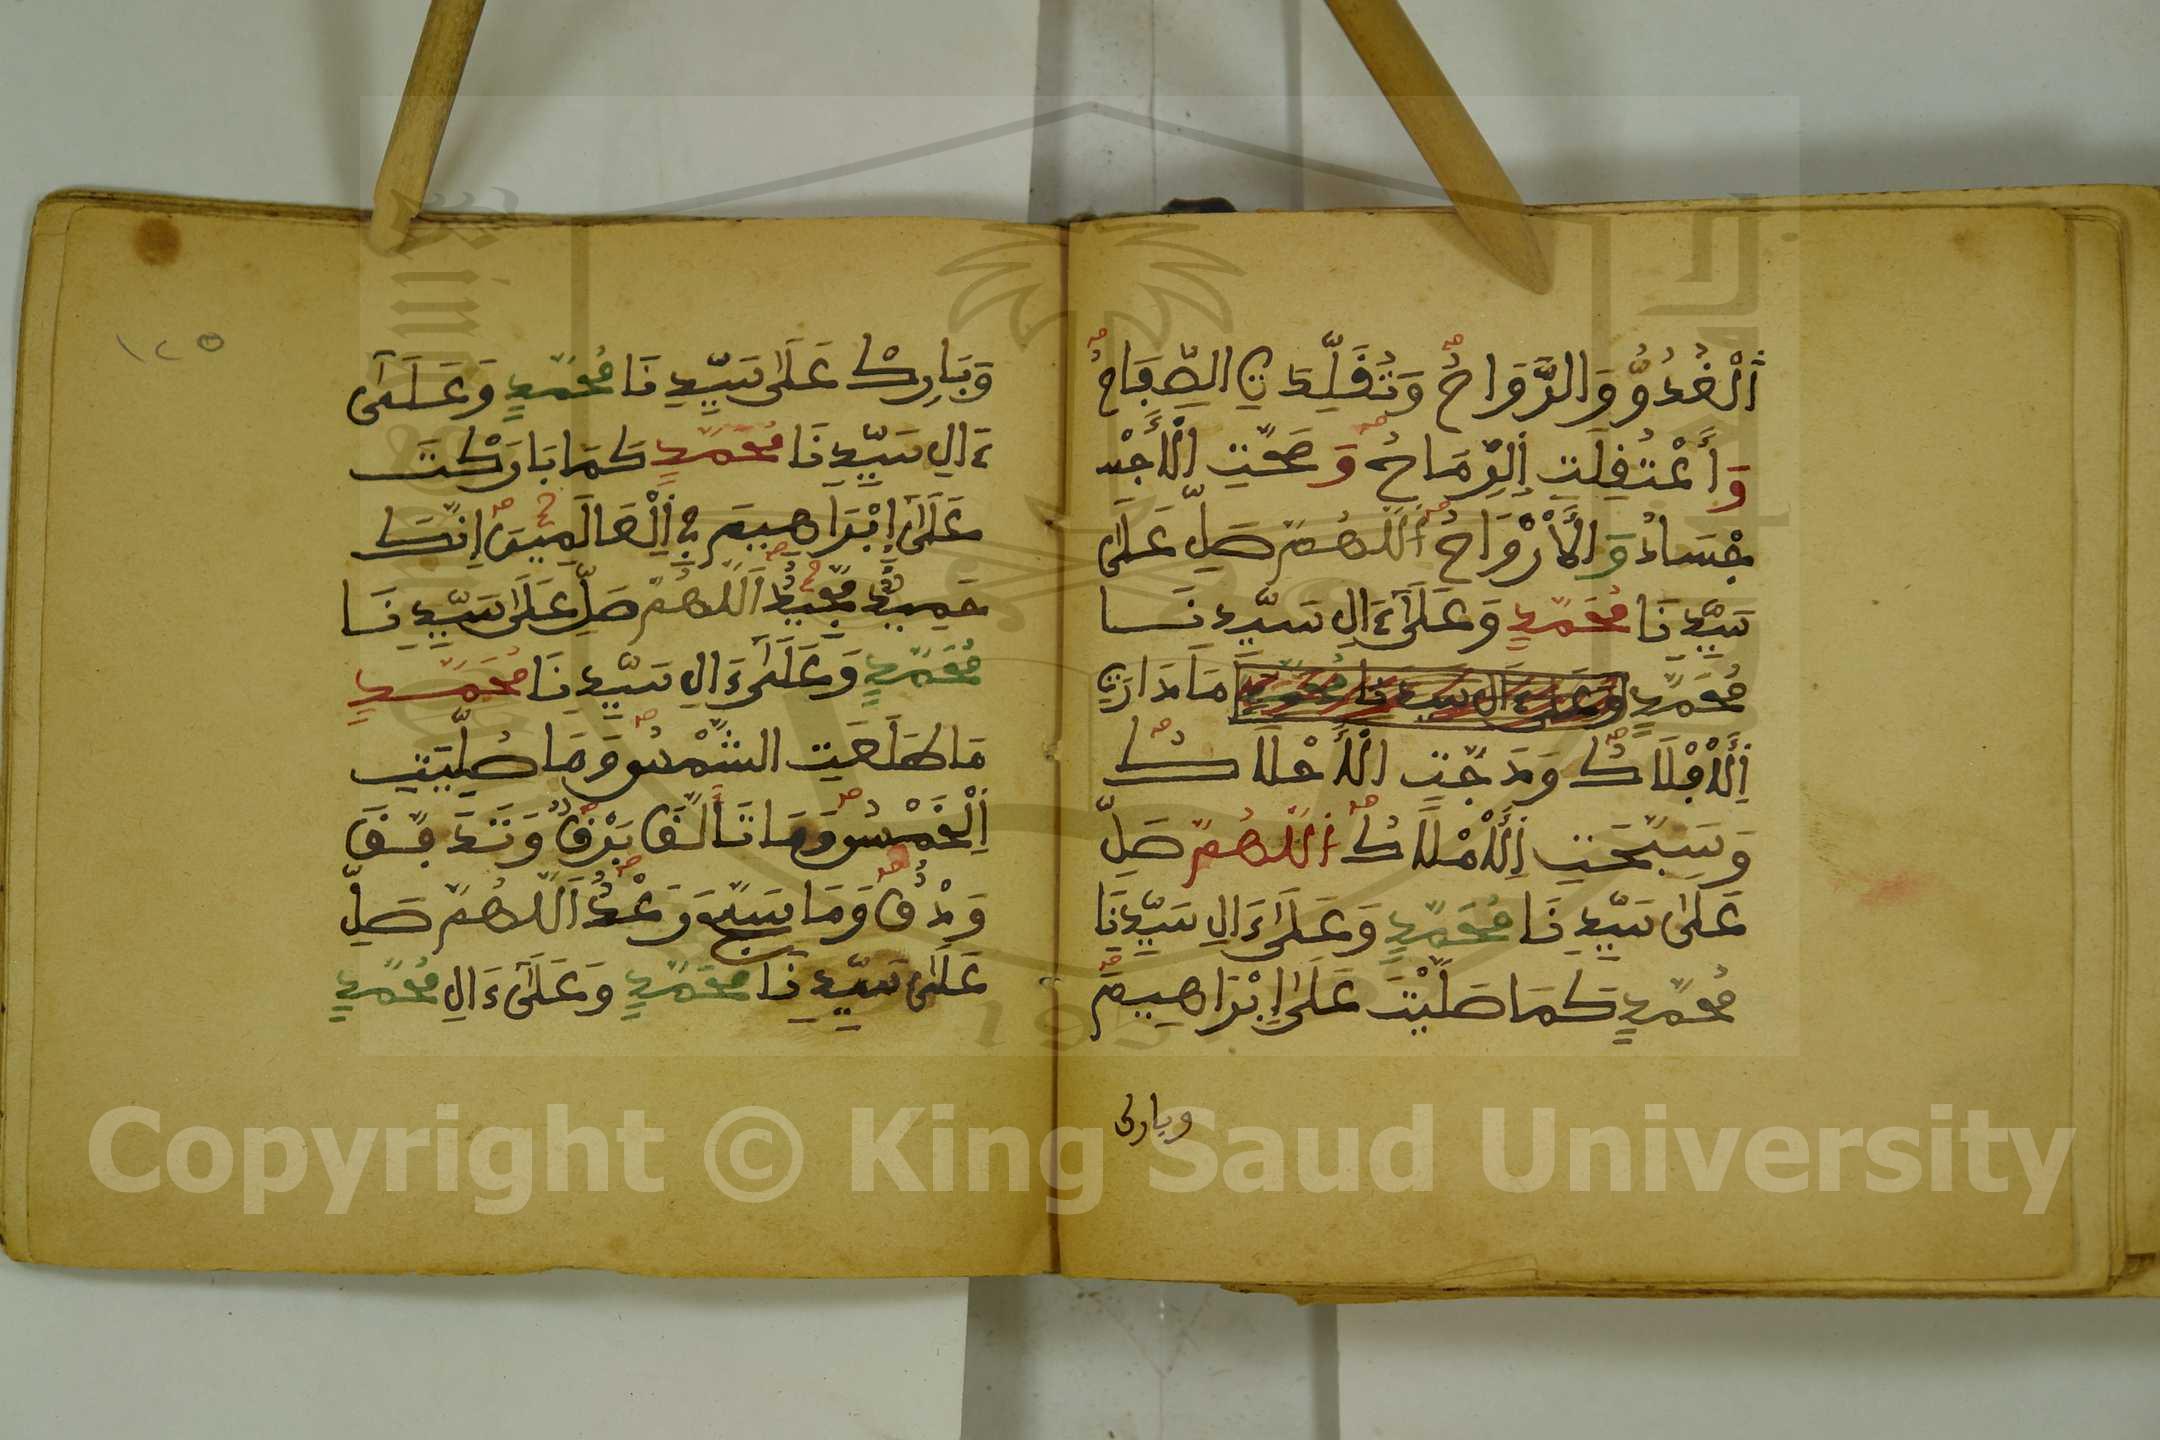 اَلْغُدُوُّ وَالرَّوَاحُ وَتُقُلِّدَتِ الصِّفَاحُ
وَاَعْتُقِلَتِ اِلرِّمَاحُ وَصَحَّتِ اِلْأَجْ
جْسَادُ وَالْأَرْوَاحُ اَللَّهُمَّ صَلِّ عَلَى
سَيِّدِنَا مُحَمَّدٍ وَعَلَىٰ ءَالِ سَيِّدِنَا
مُحَمَّدٍ وَعَلَى ءَالِ سَيِّدِنَا مُحَمَّدٍ مَا دَارَتِ
اِلْأَفْلَاكُ وَدَجَتِ الْأَحْلَاكُ
وَسَبَّحَتِ اِلْأَمْلَاكُ اَللَّهُمَّ صَلِّ
عَلَى سَيِّدِنَا مُحَمَّدٍ وَعَلَى ءَالِ سَيِّدِنَا
مُحَمَّدٍ كَمَا صَلَّيْتَ عَلَى إِبْرَاهِيمَ
وبارك
١٢٥
وَبَارِكْ عَلَى سَيِّدِنَا مُحَمَّدٍ وَعَلَىٰ
ءَالِ سَيِّدِنَا مُحَمَّدٍ كَمَا بَارَكْتَ
عَلَىٰ إِبْرَاهِيمَ فِي اِلْعَالَمِينَ إِنَّكَ
حَمِيدٌ مَّجِيدٌ اَللَّهُمَّ صَلِّ عَلَى سَيِّدِنَا
مُحَمَّدٍ وَعَلَىٰ ءَالِ سَيِّدِنَا مُحَمَّدٍ
مَا طَلَعَتِ الشَّمْسُ وَمَا صُلِّيَتِ
اِلْخَمْسُ وَمَا تَأَلَّقَ بَرْقٌ وَتَدَفَّقَ
وَدْقٌ وَمَا سَبَّحَ رَعْدٌ اَللَّهُمَّ صَلِّ
عَلَى سَيِّدِنَا مُحَمَّدٍ وَعَلَىٰ ءَالِ مُحَمَّدٍ
Copyright © King Saud University